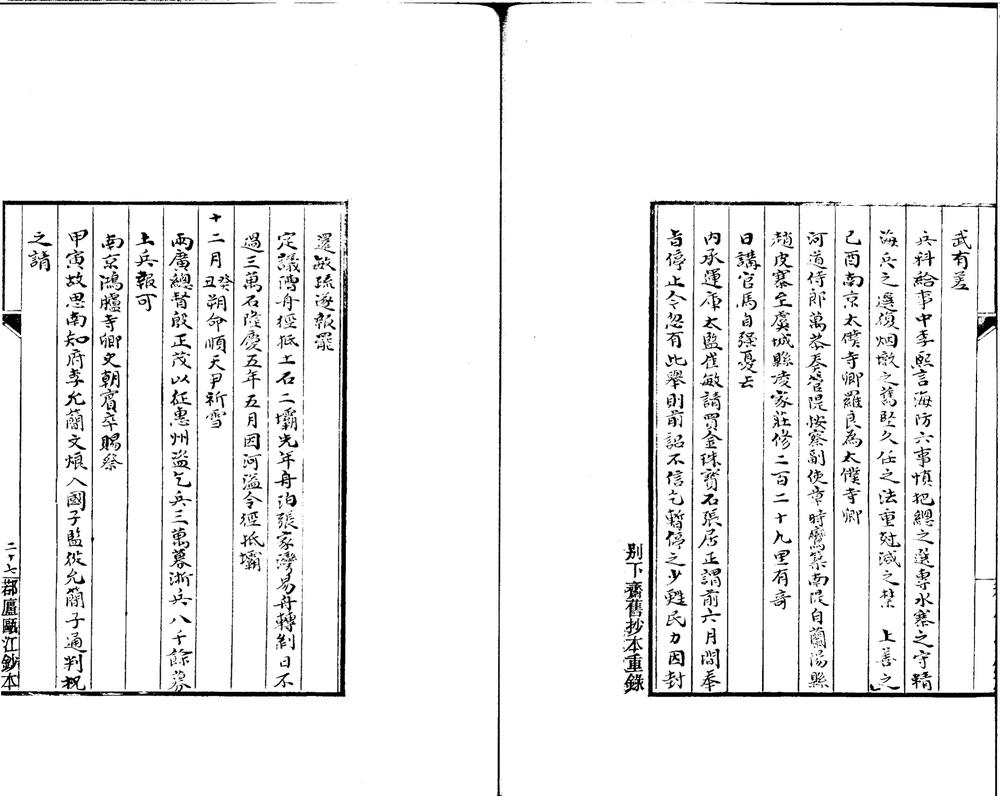 武有差
兵科給事中李熙言海防六事慎把總之選專水寨之守精
海兵之選復烟墩之舊堅久任之法重尅減之禁　上善之
己酉南京太僕寺卿羅良為太僕寺卿
河道侍郎萬恭奏管隄按察副使章時鸞築南隄自蘭陽縣
趙皮寨至虞城縣凌家莊修二百二十九里有奇
日講官馬自強憂去
内承運庫太監崔敏請買金珠寶石張居正謂前六月間奉
旨停止今忽有此舉則前詔不信乞暫停之少甦民力因封
別下齋舊抄本重錄
還敏疏遂報罷
定議漕舟徑抵土石二壩先年舟泊張家灣易舟轉剝日不
過三萬石隆慶五年五月因河溢令徑抵壩
十二月癸丑朔命順天尹祈雪
兩廣總督殷正茂以征惠州盜乞兵三萬募浙兵八千餘募
土兵報可
南京鴻臚寺卿文朝賓卒賜祭
甲寅故思南知府李允簡文烺入國子監從允簡子通判祝
之請
二十七
鄀廬甌江鈔本